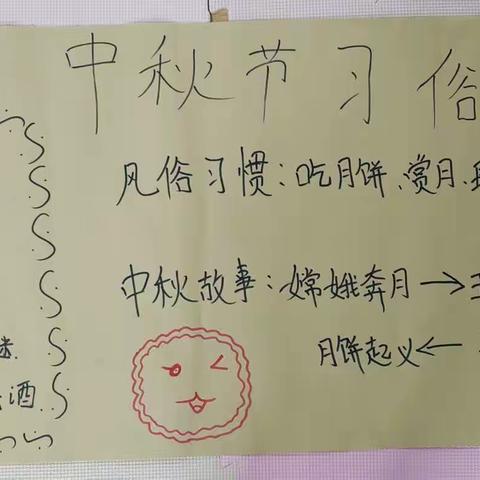 中秋节习俗
风俗习惯：吃月饼、赏月、
中秋故事：嫦娥奔月→
月饼起义←
酒